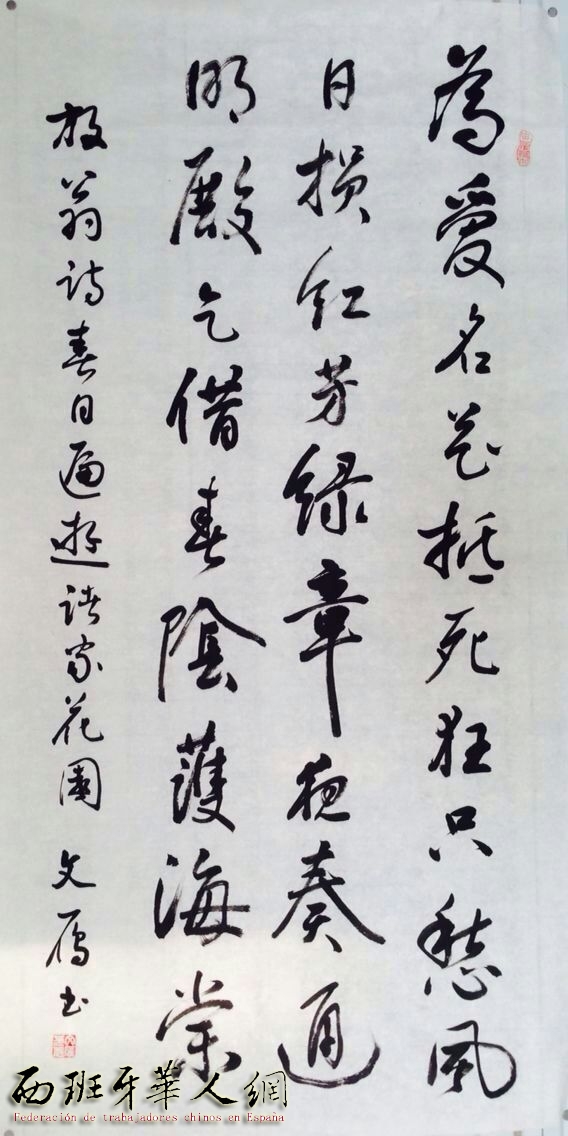 為愛名花抵死狂只愁風
日損紅芳綠章夜奏通
明殿乞借春陰護海棠
放翁詩春日遍遊諸家花園 文雁書
西班牙華人網
Federación de trabajadores chinos en España